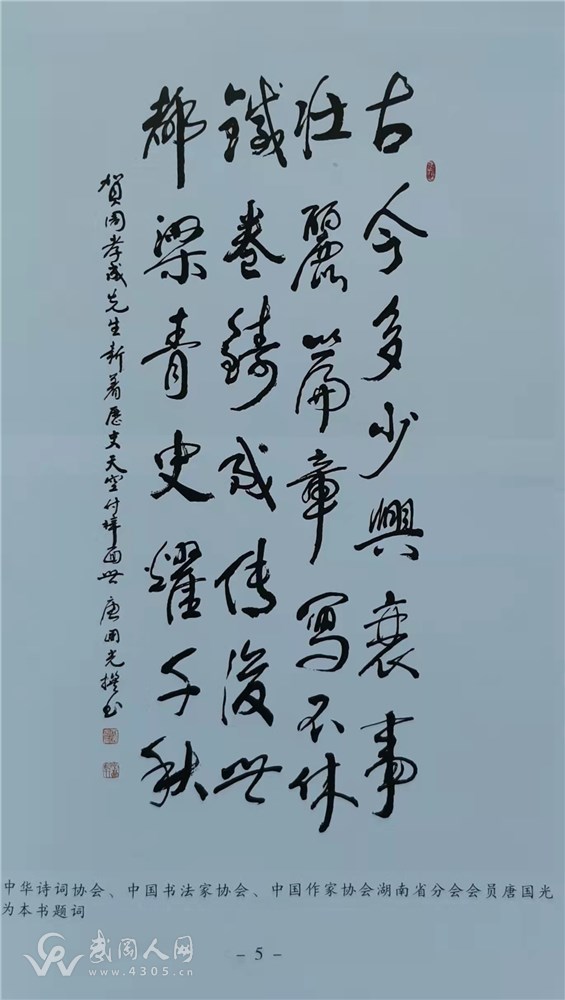 古今多少興衰事
壯麗篇章寫不休
鐵卷鑄成傳後世
都梁青史耀千秋
賀周孝成先生新著歷史天空付梓面世 唐国光撰书
中华诗词协会、中国书法家协会、中国作家协会湖南省分会会员唐国光
为本书题词
武冈人网
www.4305.cn
- 5 -